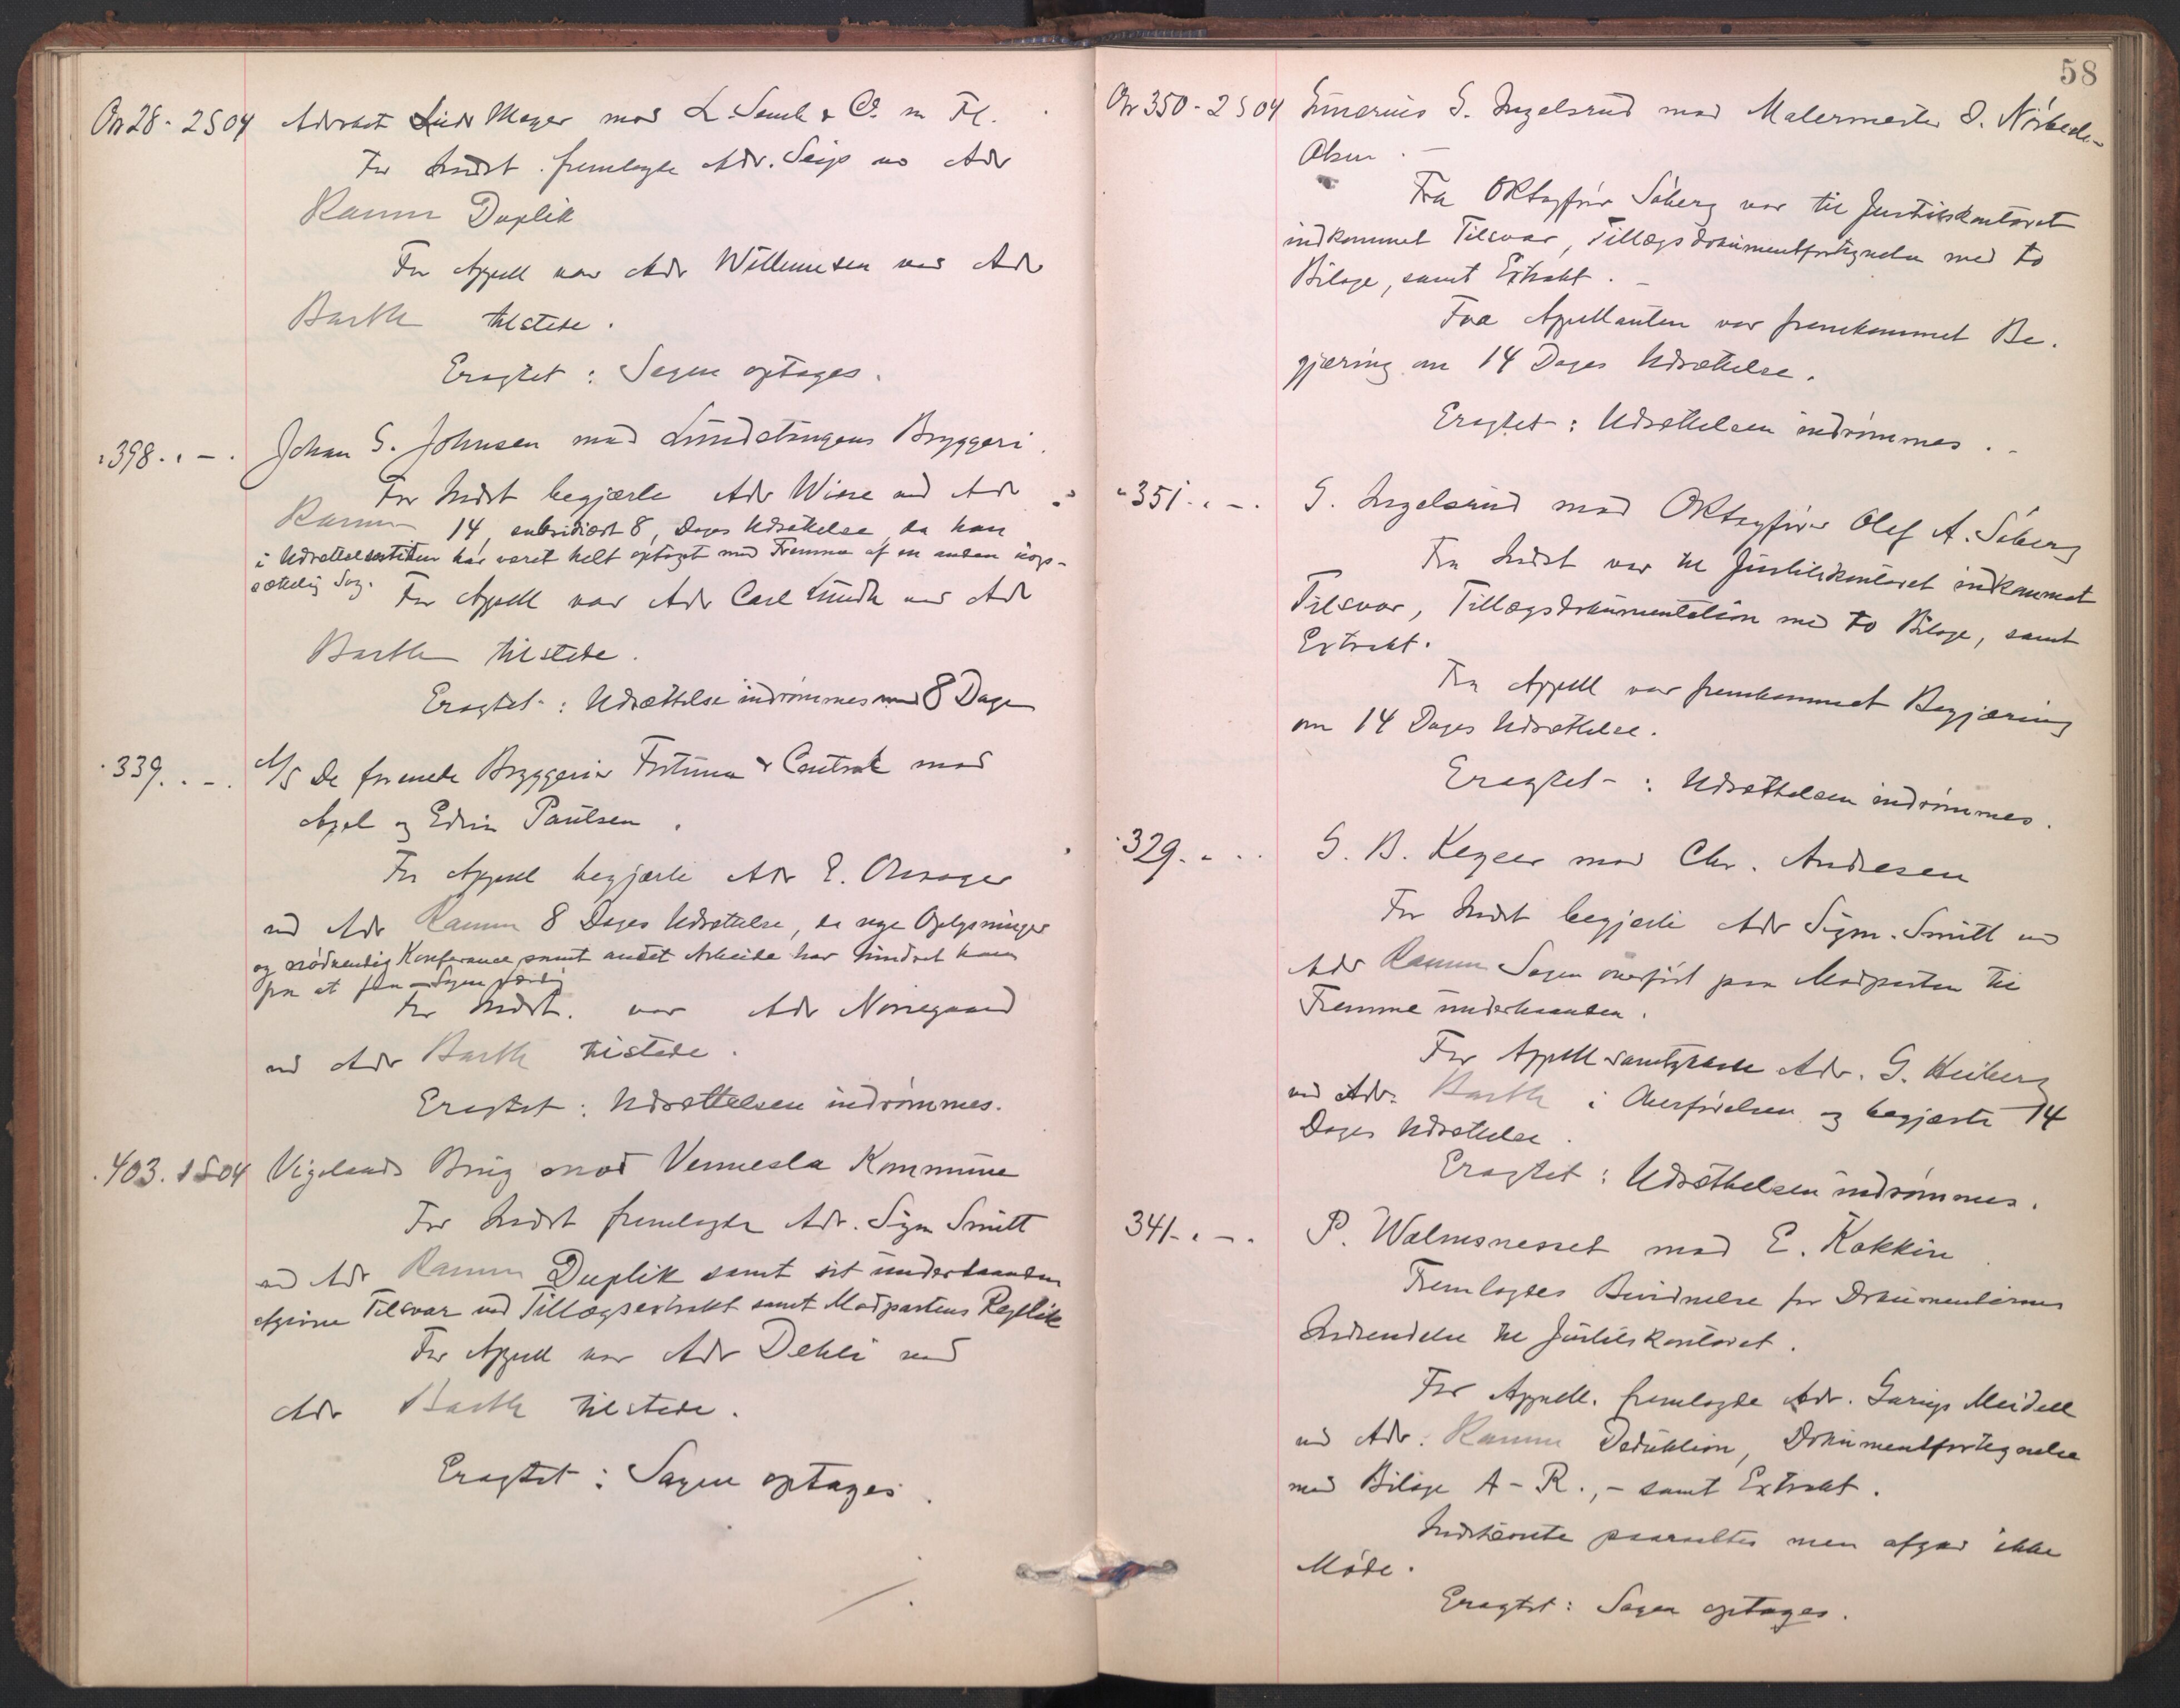 On 28 - 2 S 04 Advokat Ludv Meyer mod L. Semb & Co. m Fl.
For Indst. fremlagde Adv. Seip ved Adv
Ramm Duplik
For Appell var Adv Willumsen ved Adv
Barth tilstede.
Eragtet: Sagen optages.
" 398 . " - . Johan S. Johnsen mod Lundetangens Bryggeri.
For Indst begjærte Adv Wisse ved Adv
Ramm 14, subsidiært 8, Dages Udsættelse, da han
i Udsættelsestiden har været helt optaget med Fremme af en anden uop-
sættelig Sag. For Appell var Adv Carl Lundh ved Adv
Barth tilstede.
Eragtet: Udsættelse indrømmes med 8 Dage
" 339 . . - . A/S De forenede Bryggerier Fortuna & Central mod
Axel og Edvin Paulsen.
For Appell begjærte Adv E. Onsager
ved Adv Ramm 8 Dages Udsættelse, da nye Oplysninger
og nødvendig Konferance samt andet Arbeide har hindret ham
fra at faa Sagen færdig
For Indst. var Adv Nørregaard
ved Adv Barth tilstede.
Eragtet: Udsættelsen indrømmes.
" 403. 1 S 04 Vigelands Brug mod Vennesla Kommune
For Indst fremlagde Adv. Sigm Smitt
ved Adv Ramm Duplik samt sit underhaanden
afgivne Tilsvar med Tillægsextrakt samt Modpartens Replik
For Appell var Adv Dehli ved
Adv Barth tilstede.
Eragtet: Sagen optages.
58
On 350 - 2 S 04 S. Ingelsrud mod Malermester O. Nørbech-
Olsen. -
Fra ORSagfører Søberg var til Justitskontoret
indkommet Tilsvar, Tillægsdokumentfortegnelse med to
Bilage, samt Extrakt. -
Fra Appellanten var fremkommet Be-
gjæring om 14 Dages Udsættelse.
Eragtet: Udsættelsen indrømmes. -
" 351 . . - . S. Ingelsrud mod ORSagfører Olef A. Søberg
Fra Indst var til Justitskontoret indkommet
Tilsvar, Tillægsdokumentation med to Bilage, samt
Extrakt.
Fra Appell var fremkommet Begjæring
om 14 Dages Udsættelse.
Eragtet: Udsættelsen indrømmes.
" 329 . . . . S. B. Keyser mod Chr. Andresen
For Indst begjærte Adv Sigm. Smitt ved
Adv Ramm Sagen overført paa Modparten til
Fremme underhaanden.
For Appell samtykkede Adv. G. Heiberg
ved Adv. Barth i Overførelsen og begjærte 14
Dages Udsættelse.
Eragtet: Udsættelsen indrømmes.
341 . . - . P. Walmsnesset mod E. Kokkin
Fremlagdes Bevidnelse for Dokumenternes
Indsendelse til Justitskontoret.
For Appell. fremlagde Adv. Meidell
ved Adv. Ramm Deduktion, Dokumentfortegnelse
med Bilage A - R., - samt Extrakt.
Indstevnte paaraabtes men afgav ikke
Møde.
Eragtet: Sagen optages.